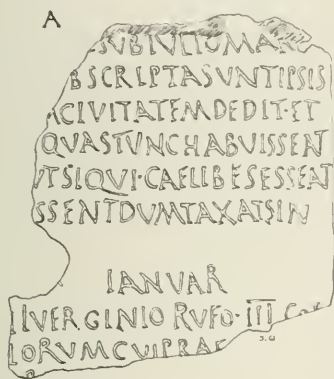 A
SUBIULIOMA
BSCRIPTASUNTIPSIS
ACIVITATEMDEDIT·ET
QUASTUNCHABUISSENT
UTSIQUI·CAELIBESESSENT
SSENTDUMTAXATSIN
IANUAR
IIVERGINIO RUFO·III COS
LORUMCUIPRAE
S.W